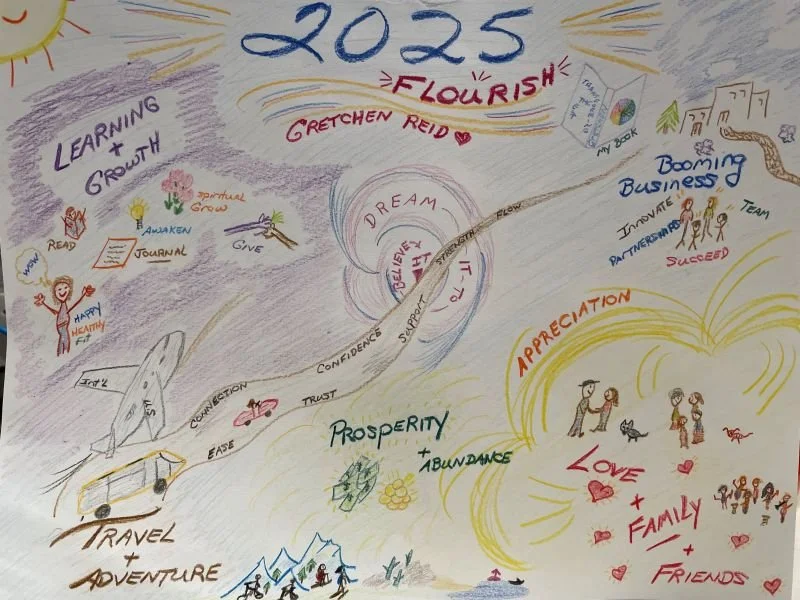 2025
FLOURISH
GRETCHEN REID
MY BOOK
LEARNING
+
GROWTH
SPIRITUAL
GROW
AWAKEN
READ
JOURNAL
GIVE
WOW
HAPPY
HEALTHY
FIT
DREAM
BELIEVE
IT
IT TO
STRENGTH
FLOW
SUPPORT
CONFIDENCE
CONNECTION
TRUST
EASE
BOOMING
BUSINESS
INNOVATE
TEAM
PARTNERSHIPS
SUCCEED
APPRECIATION
INT'L
PROSPERITY
+
ABUNDANCE
LOVE
+
FAMILY
+
FRIENDS
TRAVEL
+
ADVENTURE